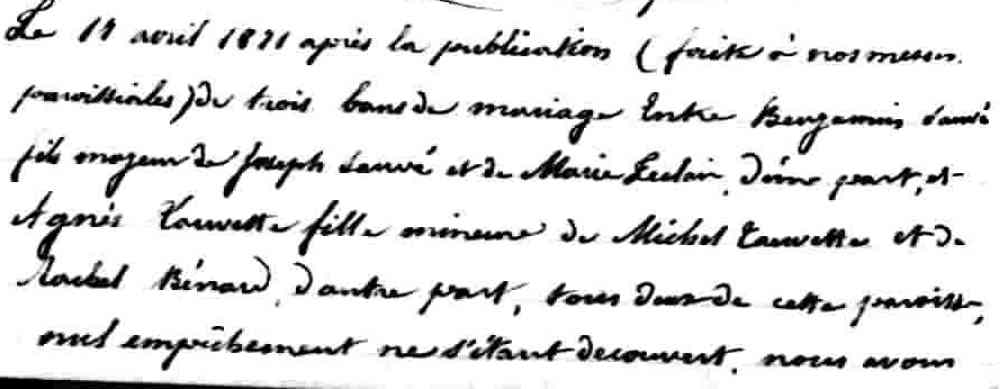 Le 17 avril 1871 après la publication (faite à nos messes
paroissiales) de trois bans de mariage Entre Benjamin Sauvé
fils majeur de Joseph Sauvé et de Marie Leclair, d'une part, et
Agnès Pauvette fille mineure de Michel Pauvette et de
Rachel Bénard, d'autre part, tous deux de cette paroisse,
nul empêchement ne s'étant decouvert, nous avons